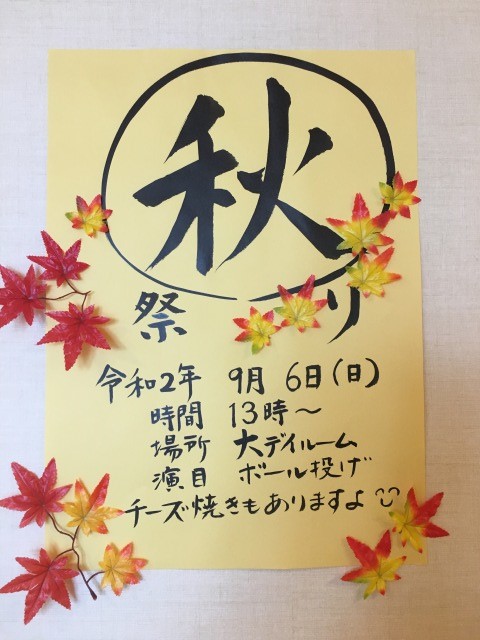 秋
祭り
令和2年 9月 6日(日)
時間 13時～
場所 大デイルーム
演目 ボール投げ
チーズ焼きもありますよ